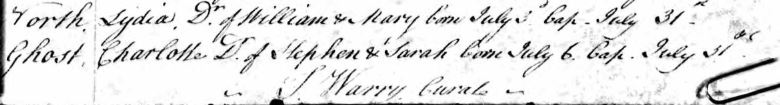 North, Lydia, Dr. of William & Mary born July 3d Bap. July 31st
Ghost, Charlotte Dr. of Stephen & Sarah born July 6. Bap. July 31st
S. Warry Curate